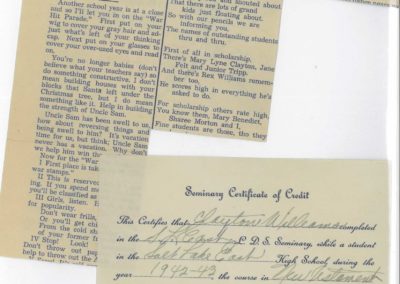 Another school year is at a close
and so I'll let you in on the "War
Hit Parade." First put on your
wig to cover your gray hair and ad-
just what's left of your thinking
cap. Next put on your glasses to
cover your over-used eyes and read
on.
You're no longer babies (don't
believe what your teachers say) so
do something constructive. I don't
mean building houses with your
blocks that Santa left under the
Christmas tree, but I do mean
something like it. Help in building
the strength of Uncle Sam.
Uncle Sam has been swell to us
how about reversing things and
being swell to him? It's vacation
time for us, but think: Uncle Sam
never has a vacation. Why don't
we help him win
Now for the "War
I First place is take
war stamps."
II This is reserved
ing. If you spend
you'll be classified as
III Girls, listen.
for popularity.
Don't wear frills,
Or you'll get
From the cold
of your former
IV Stop! Look!
Don't throw out
help to throw
That there are lots of grand
kids just floating about,
So with our pencils we are
informing you,
The names of outstanding students
thru and thru.
First of all in scholarship,
There's Mary Lyne Clayton, Jane
Felt and Junior Tripp.
And there's Rex Williams remem-
ber too,
He scores high in everything he's
asked to do.
For scholarship others rate high,
You know them, Mary Benedict,
Sharee Morton and I.
Fine students are those, tho they
Seminary Certificate of Credit
This Certifies that Clayton Williams completed
in the L. D. S. Seminary, while a student
in the Salt Lake East High School, during the
year 1942-43, the course in New Testament